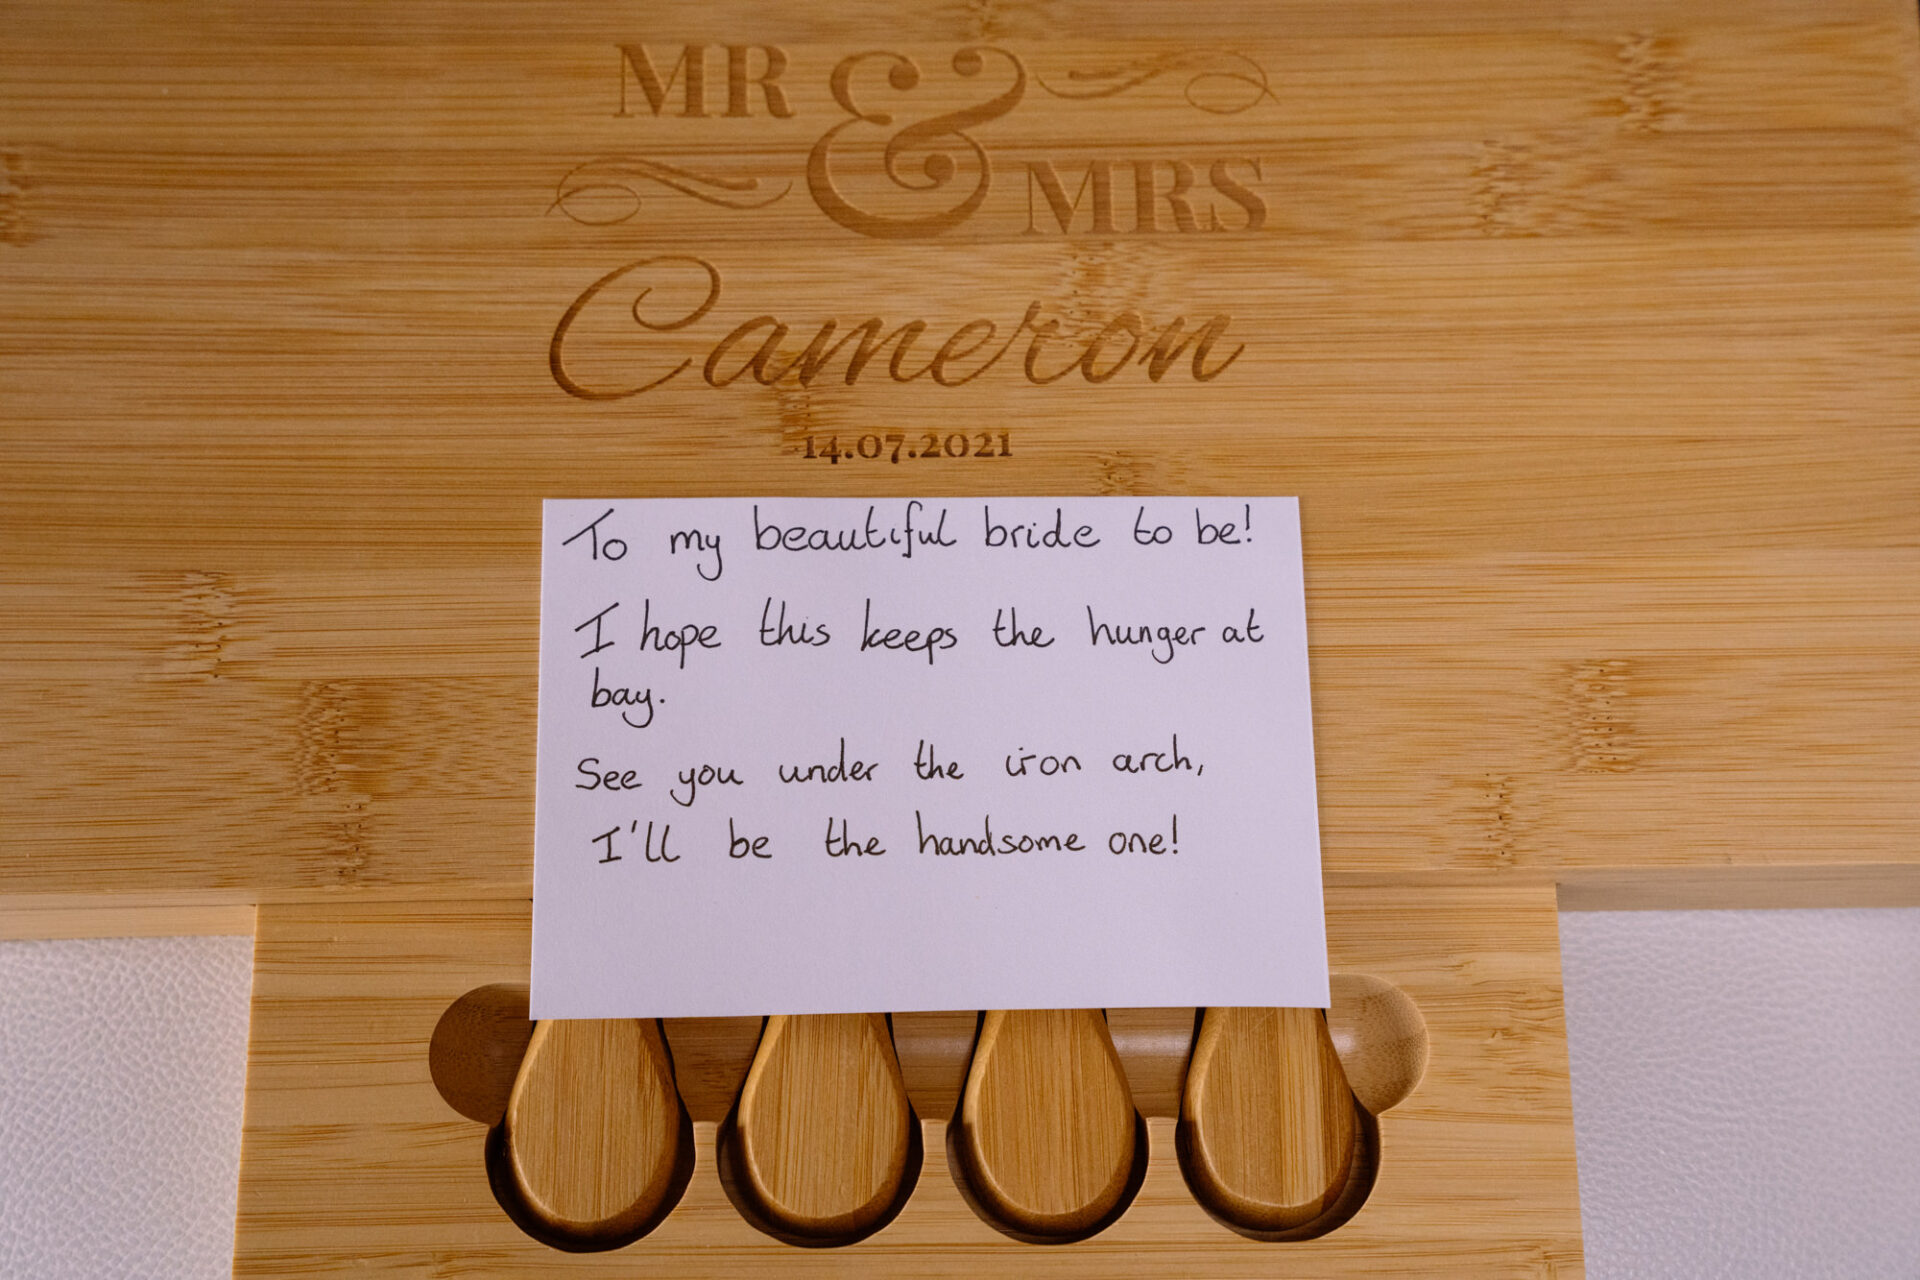 MR & MRS
Cameron
14.07.2021
To my beautiful bride to be!
I hope this keeps the hunger at
bay.
See you under the iron arch,
I'll be the handsome one!